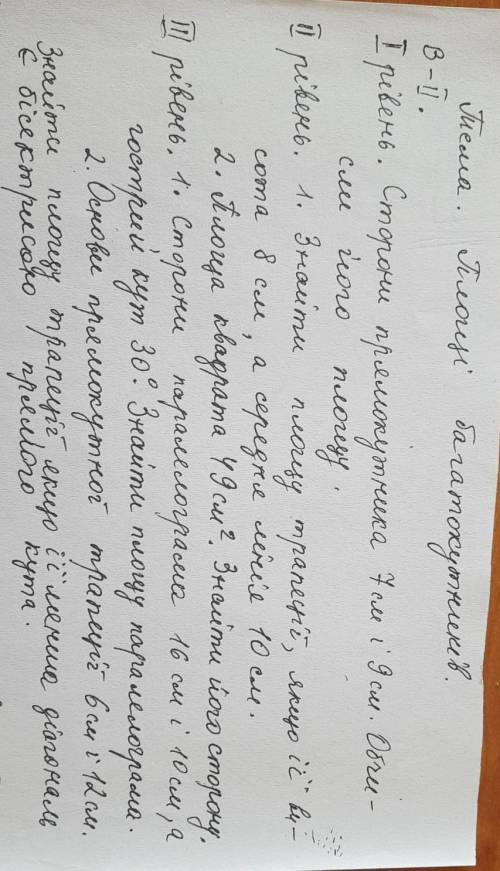 Тема. Площі багатокутників.
В-II.
I рівень. Сторони прямокутника 7см і 9см. Обчи-
сли його площу.
II рівень. 1. Знайти площу трапеції, якщо її ви-
сота 8 см, а середня лінія 10 см.
2. Площа квадрата 49 см². Знайти його сторону.
III рівень. 1. Сторони паралелограма 16 см і 10 см, а
гострий кут 30°. Знайти площу паралелограма.
2. Основи прямокутної трапеції 6 см і 12 см.
Знайти площу трапеції якщо її менша діагональ
є бісектрисою прямого кута.